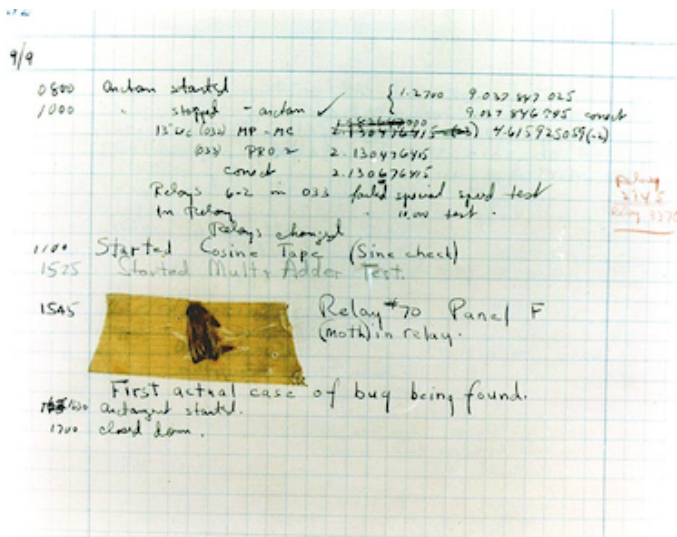 9/9
0800 antan started { 1.2700 9.037 847 025
1000 " stopped - antan ✓ { 9.037 846 995 correct
13" UC (032) MP-MC 2.130476415 4.615925059(-2)
(033) PRO 2 2.130476415
correct 2.130676415
Relays 6-2 in 033 failed special speed test
In Relay " 11.00 test.
Relays changed
Relay
2145
Relay 3370
1100 Started Cosine Tape (Sine check)
1525 Started Mult + Adder Test.
1545 Relay #70 Panel F
(moth) in relay.
First actual case of bug being found.
1630 antangent started.
1700 closed down.